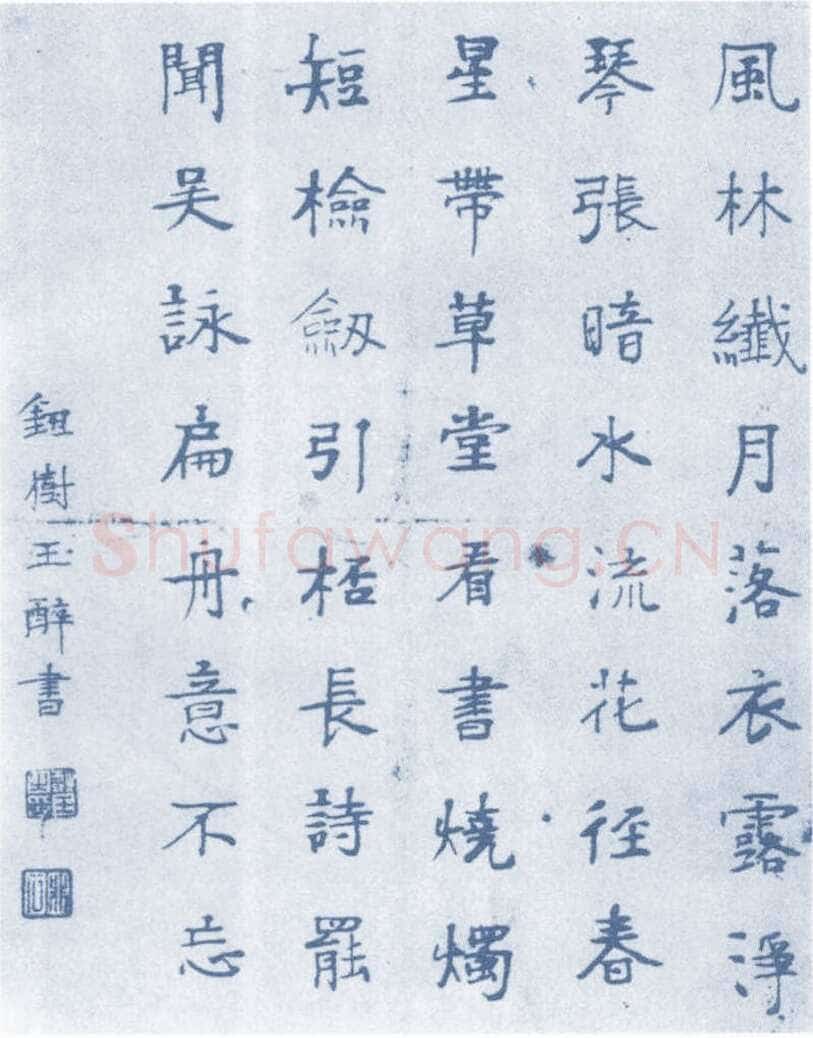 風林纖月落衣露淨
琴張暗水流花径春
星帶草堂看書燒燭
短檢劔引桮長詩罷
聞吴詠扁舟意不忘
鈕樹玉醉書
Shufawang.CN